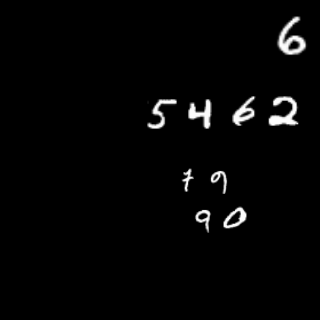 6
5462
79
90